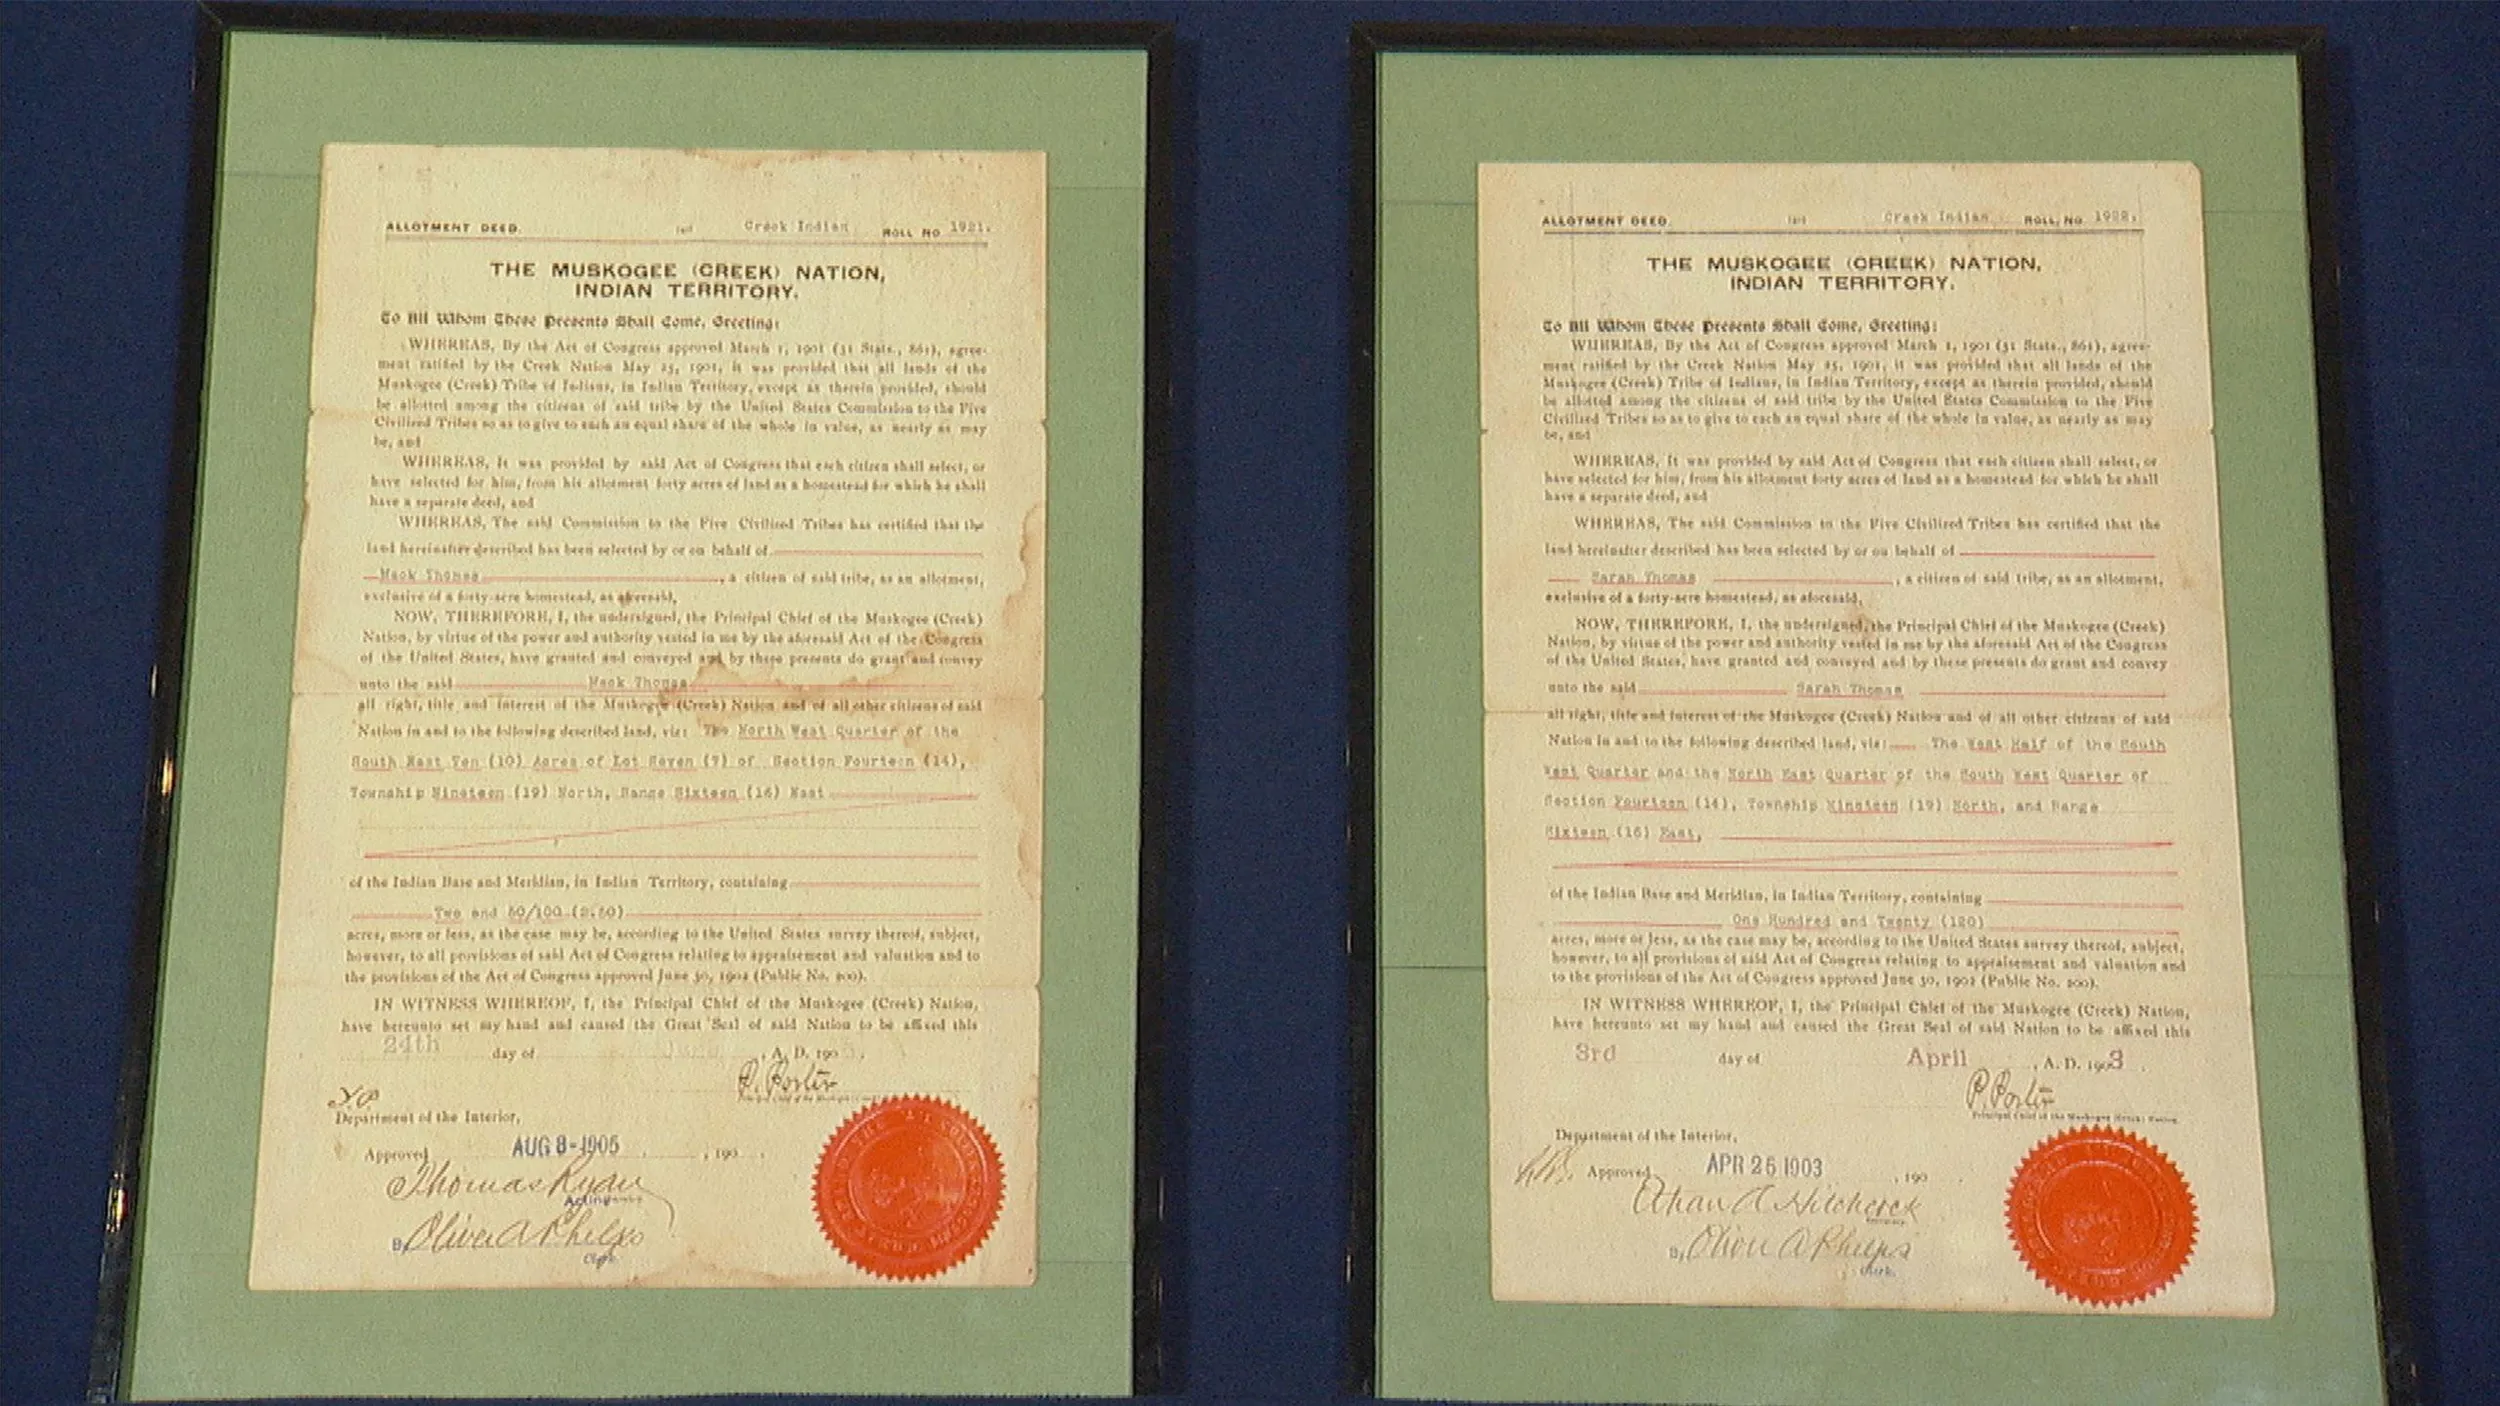 ALLOTMENT DEED. Creek Indian ROLL NO 1921.
THE MUSKOGEE (CREEK) NATION,
INDIAN TERRITORY.
To All Whom These Presents Shall Come, Greeting:
WHEREAS, By the Act of Congress approved March 1, 1901 (31 Stats., 861), agree-
ment ratified by the Creek Nation May 25, 1901, it was provided that all lands of the
Muskogee (Creek) Tribe of Indians, in Indian Territory, except as therein provided, should
be allotted among the citizens of said tribe by the United States Commission to the Five
Civilized Tribes so as to give to each an equal share of the whole in value, as nearly as may
be, and
WHEREAS, It was provided by said Act of Congress that each citizen shall select, or
have selected for him, from his allotment forty acres of land as a homestead for which he shall
have a separate deed, and
WHEREAS, The said Commission to the Five Civilized Tribes has certified that the
land hereinafter described has been selected by or on behalf of
Mack Thomas, a citizen of said tribe, as an allotment,
exclusive of a forty-acre homestead, as aforesaid,
NOW, THEREFORE, I, the undersigned, the Principal Chief of the Muskogee (Creek)
Nation, by virtue of the power and authority vested in me by the aforesaid Act of the Congress
of the United States, have granted and conveyed and by these presents do grant and convey
unto the said Mack Thomas
all right, title and interest of the Muskogee (Creek) Nation and of all other citizens of said
Nation in and to the following described land, viz: The North West Quarter of the
South East Ten (10) Acres of Lot Seven (7) of Section Fourteen (14),
Township Nineteen (19) North, Range Sixteen (16) East
of the Indian Base and Meridian, in Indian Territory, containing
Two and 50/100 (2.50)
acres, more or less, as the case may be, according to the United States survey thereof, subject,
however, to all provisions of said Act of Congress relating to appraisement and valuation and to
the provisions of the Act of Congress approved June 30, 1902 (Public No. 200).
IN WITNESS WHEREOF, I, the Principal Chief of the Muskogee (Creek) Nation,
have hereunto set my hand and caused the Great Seal of said Nation to be affixed this
24th day of June, A. D. 190
P. Porter
Department of the Interior,
Approved AUG 8-1905, 190 .
Thomas Ryan
Acting
By Oliver A Phelps
Clerk.
ALLOTMENT DEED. Creek Indian ROLL NO. 1922.
THE MUSKOGEE (CREEK) NATION,
INDIAN TERRITORY.
To All Whom These Presents Shall Come, Greeting:
WHEREAS, By the Act of Congress approved March 1, 1901 (31 Stats., 861), agree-
ment ratified by the Creek Nation May 25, 1901, it was provided that all lands of the
Muskogee (Creek) Tribe of Indians, in Indian Territory, except as therein provided, should
be allotted among the citizens of said tribe by the United States Commission to the Five
Civilized Tribes so as to give to each an equal share of the whole in value, as nearly as may
be, and
WHEREAS, It was provided by said Act of Congress that each citizen shall select, or
have selected for him, from his allotment forty acres of land as a homestead for which he shall
have a separate deed, and
WHEREAS, The said Commission to the Five Civilized Tribes has certified that the
land hereinafter described has been selected by or on behalf of
Sarah Thomas, a citizen of said tribe, as an allotment,
exclusive of a forty-acre homestead, as aforesaid,
NOW, THEREFORE, I, the undersigned, the Principal Chief of the Muskogee (Creek)
Nation, by virtue of the power and authority vested in me by the aforesaid Act of the Congress
of the United States, have granted and conveyed and by these presents do grant and convey
unto the said Sarah Thomas
all right, title and interest of the Muskogee (Creek) Nation and of all other citizens of said
Nation in and to the following described land, viz: The West Half of the South
West Quarter and the North East Quarter of the South West Quarter of
Section Fourteen (14), Township Nineteen (19) North, and Range
Sixteen (16) East,
of the Indian Base and Meridian, in Indian Territory, containing
One Hundred and Twenty (120)
acres, more or less, as the case may be, according to the United States survey thereof, subject,
however, to all provisions of said Act of Congress relating to appraisement and valuation and
to the provisions of the Act of Congress approved June 30, 1902 (Public No. 200).
IN WITNESS WHEREOF, I, the Principal Chief of the Muskogee (Creek) Nation,
have hereunto set my hand and caused the Great Seal of said Nation to be affixed this
3rd day of April, A. D. 1903.
P. Porter
Principal Chief of the Muskogee (Creek) Nation.
Department of the Interior,
Approved APR 25 1903, 190 .
Ethan A Hitchcock
Secretary.
By Oliver A Phelps
Clerk.